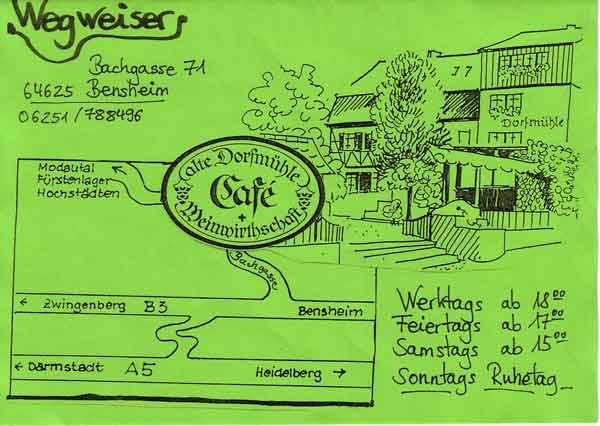 Wegweiser
Bachgasse 71
64625 Bensheim
06251/788496
Dorfmühle
Modautal
Fürstenlager
Hochstädten
alte Dorfmühle
Café
+
Weinwirthschaft
Bachgasse
← Zwingenberg B3 Bensheim
← Darmstadt A5 Heidelberg →
Werktags ab 18⁰⁰
Feiertags ab 17⁰⁰
Samstags ab 15⁰⁰
Sonntags Ruhetag